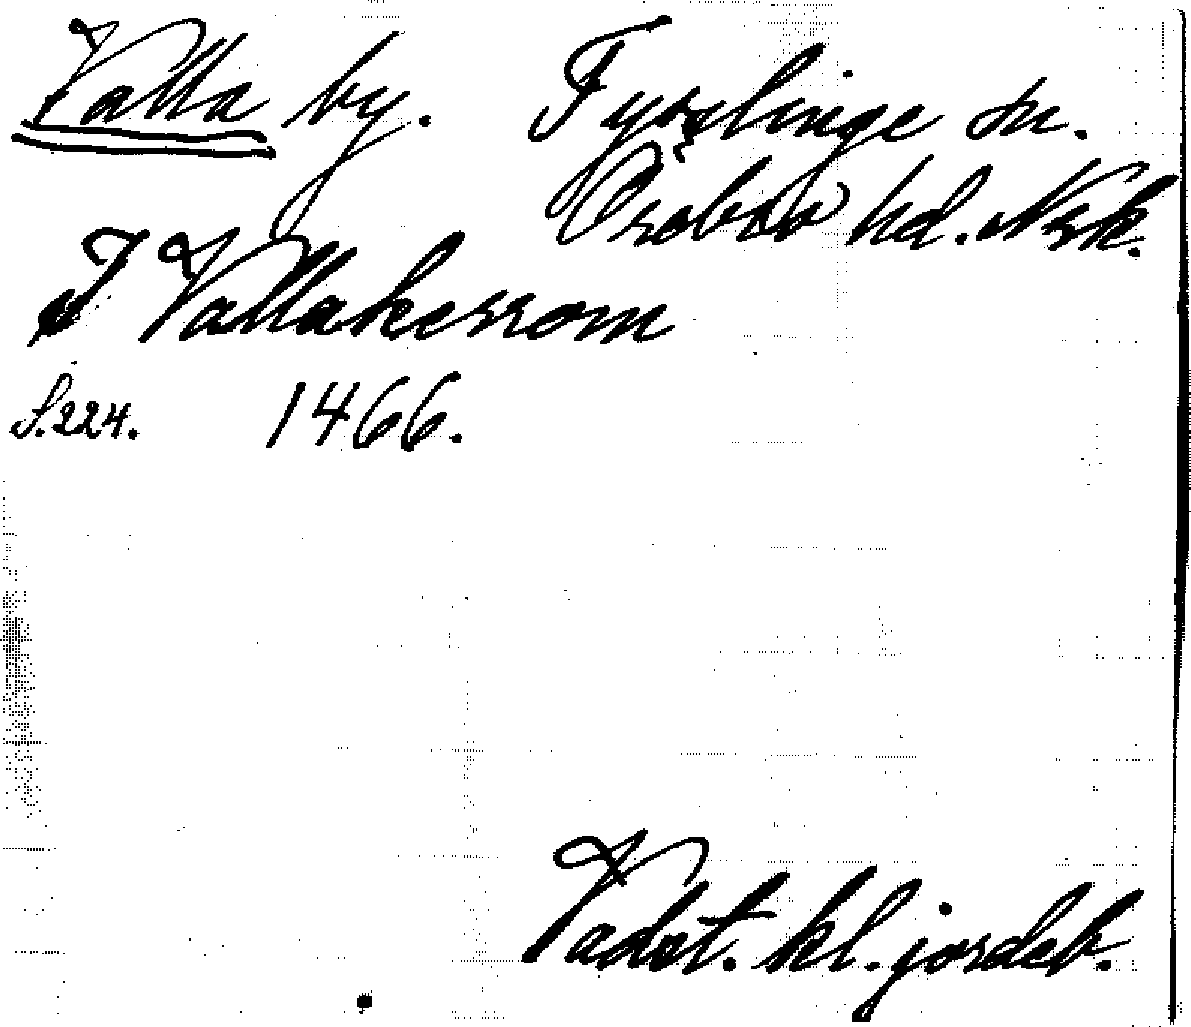 Valla by. Tysslinge sn.
Örebro hd. Nrk.
I Vallakerrom
S. 224. 1466.
Vadst. kl. jordeb.